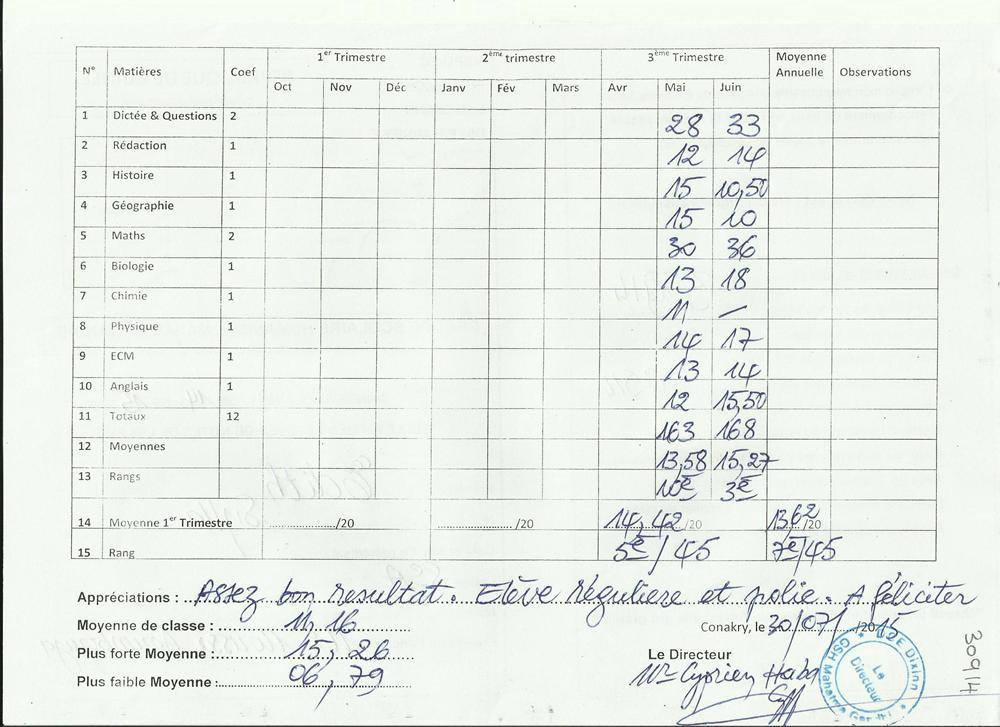 N° Matières Coef 1er Trimestre 2ème trimestre 3ème Trimestre Moyenne Annuelle Observations
Oct Nov Déc Janv Fév Mars Avr Mai Juin
1 Dictée & Questions 2 28 33
2 Rédaction 1 12 14
3 Histoire 1 15 10,50
4 Géographie 1 15 10
5 Maths 2 30 36
6 Biologie 1 13 18
7 Chimie 1 11 —
8 Physique 1 14 17
9 ECM 1 13 14
10 Anglais 1 12 15,50
11 Totaux 12 163 168
12 Moyennes 13,58 15,27
13 Rangs 10e 3e
14 Moyenne 1er Trimestre ............../20 ............../20 14,42/20 13,62/20
15 Rang 5e/45 7e/45
Appréciations : Assez bon resultat. Elève Régulière et polie. A féliciter
Moyenne de classe : 11,16
Conakry, le 30/07/2015
Plus forte Moyenne : 15,26
Le Directeur
Plus faible Moyenne : 06,79
Mr Cyprien Haba
Le Directeur
GSH Mahatma
Dixinn
30914